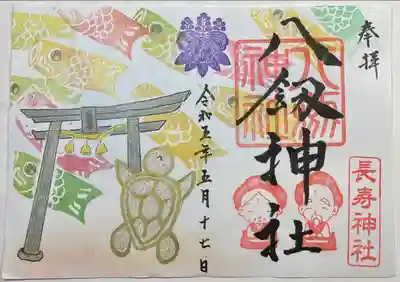 奉拝
八剱神社
八剱
神社
長寿神社
令和五年五月十七日